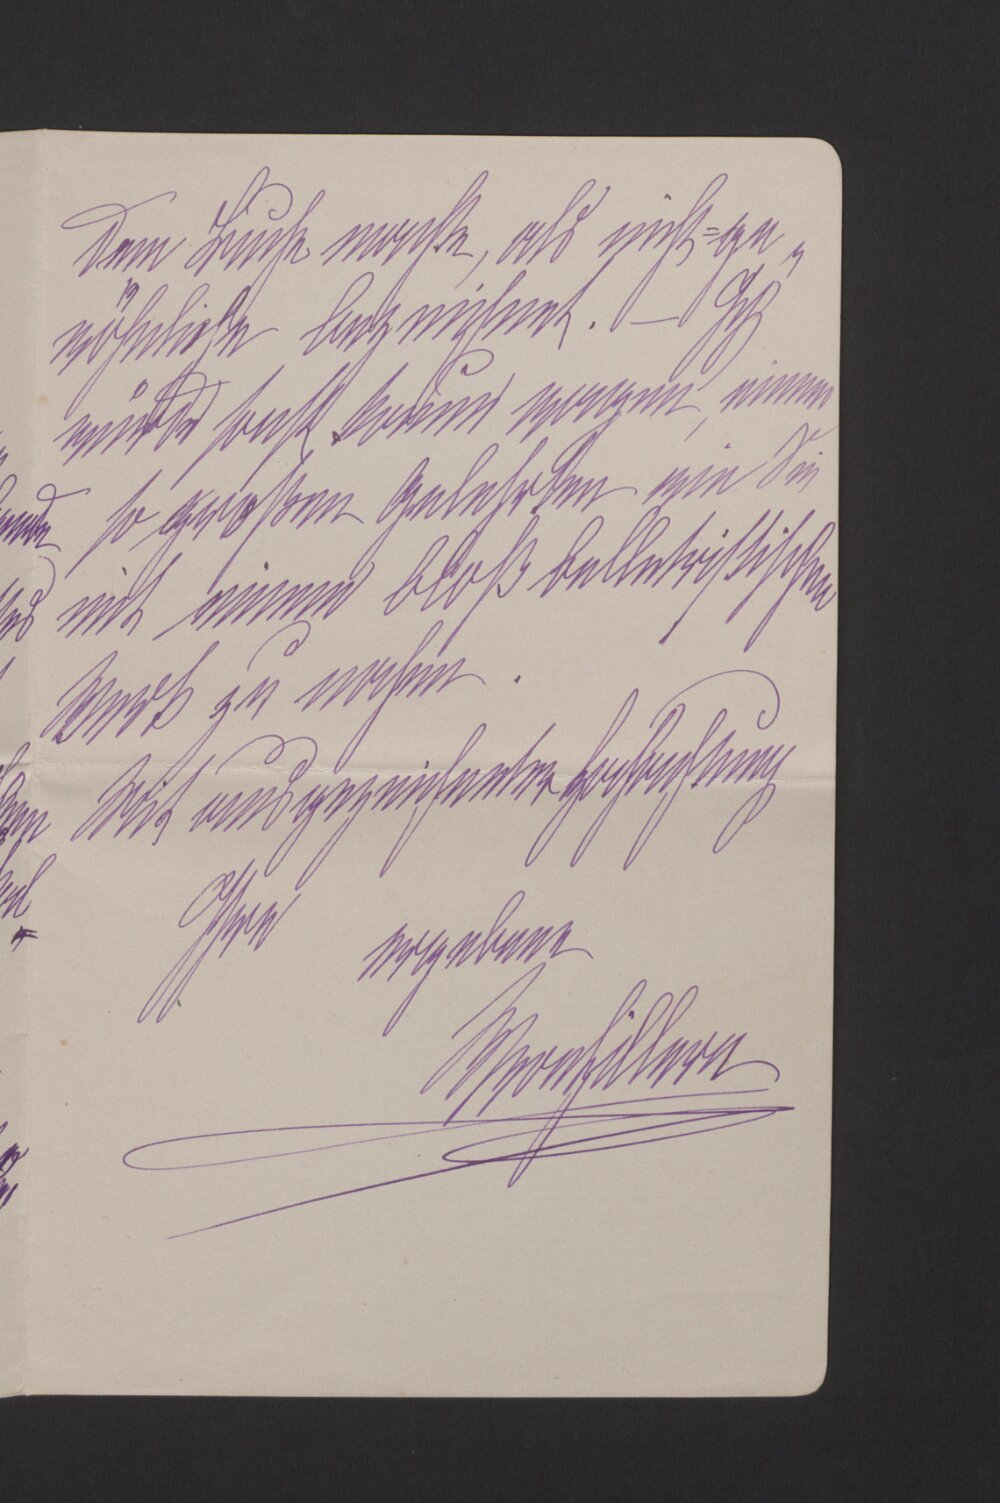 dem Buche machte, als nicht=ge„
wöhnliche bezeichnet. – Ich
würde sonst kaum wagen, einem
so großen Gelehrten wie Sie
mit einem bloß belletristischen
Werk zu nahen.
Mit ausgezeichneter Hochachtung
Ihre
ergebene
WvonHillern